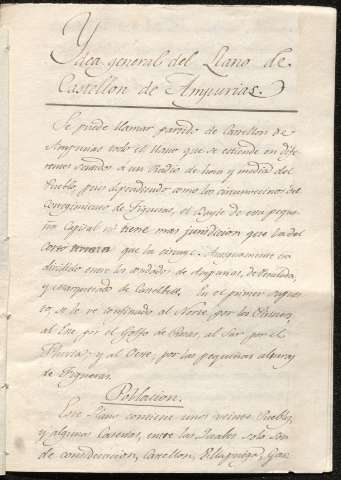 Ydea general del Llano de
Castellon de Ampurias.
Se puede llamar partido de Castellon de
Ampurias todo el llano que se estiende en dife
rentes sentidos a un Radio de hora y media del
Pueblo, pues dependiendo como los circunvecinos del
corregimiento de Figueras, el Bayle de esta peque
ña Capital no tiene mas jurisdicion que la del
corto que la circuye. Antiguamente
dividido entre los condados de Ampurias, de Peralada,
y marquesado de Canelles. En el primer
confinado al Norte, por los Pirineos,
al Este por el Golfo de Rosas, al Sur por el
Fluvia; y al Oeste, por las pequeñas alturas
de Figueras.
Poblacion.
Este Llano contiene unos veinte Pueblos,
y algunos Caserios, entre los quales solo son
de consideracion, Castellon,